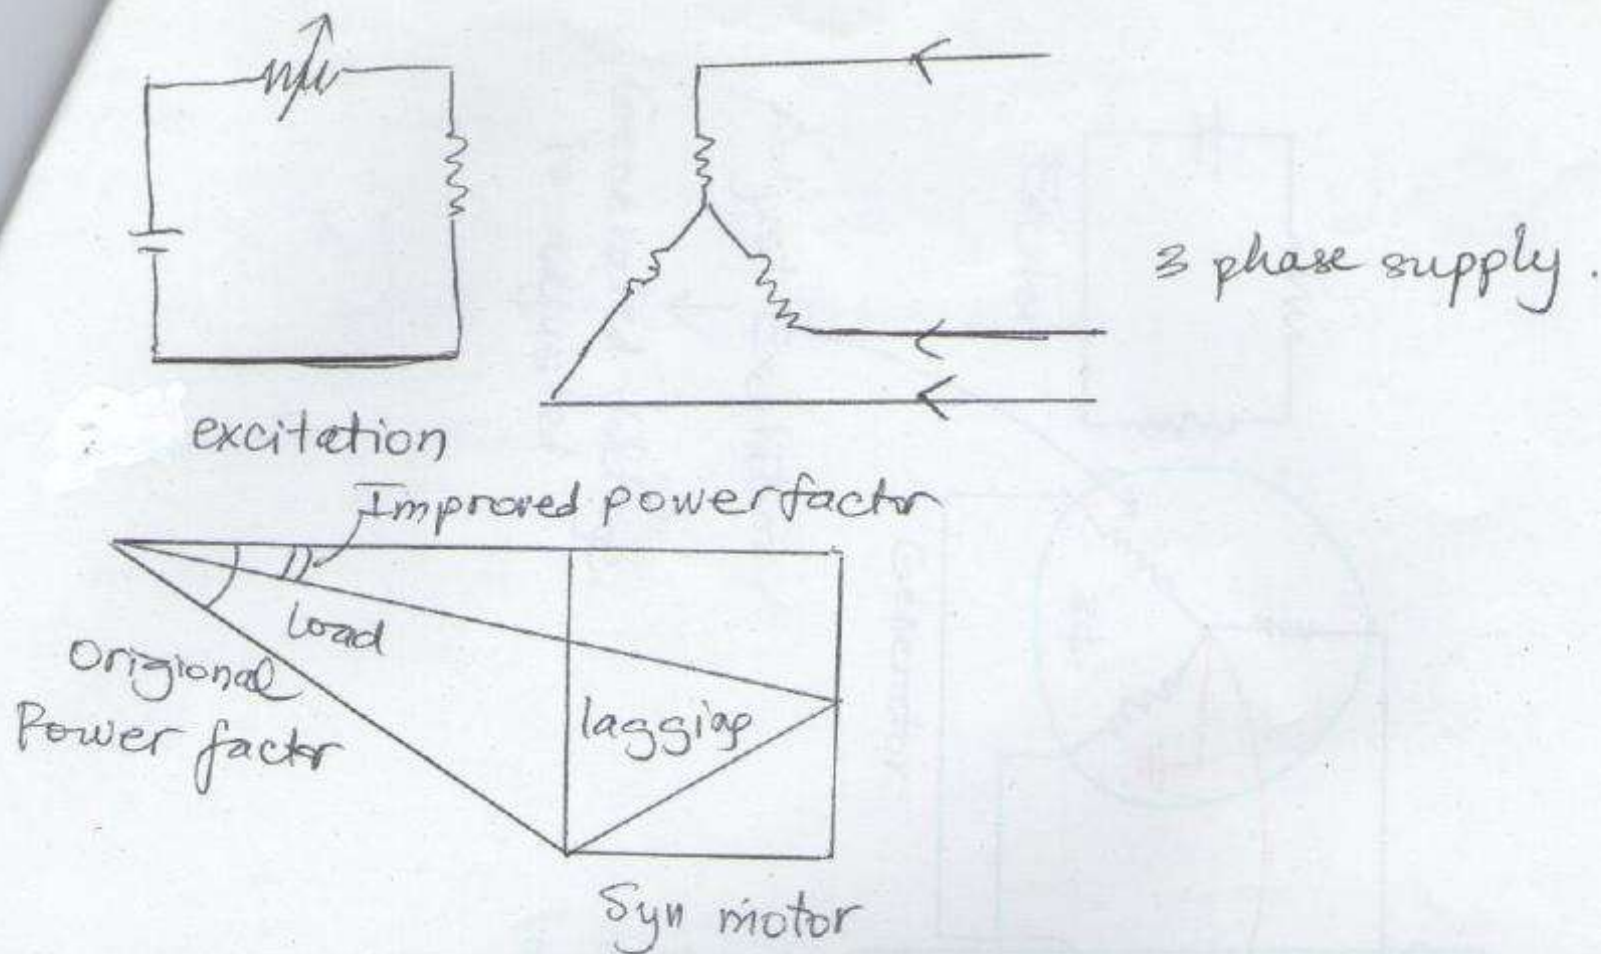 3 phase supply.
excitation
Improved power factor
load
Origional
Power factor
lagging
Syn motor